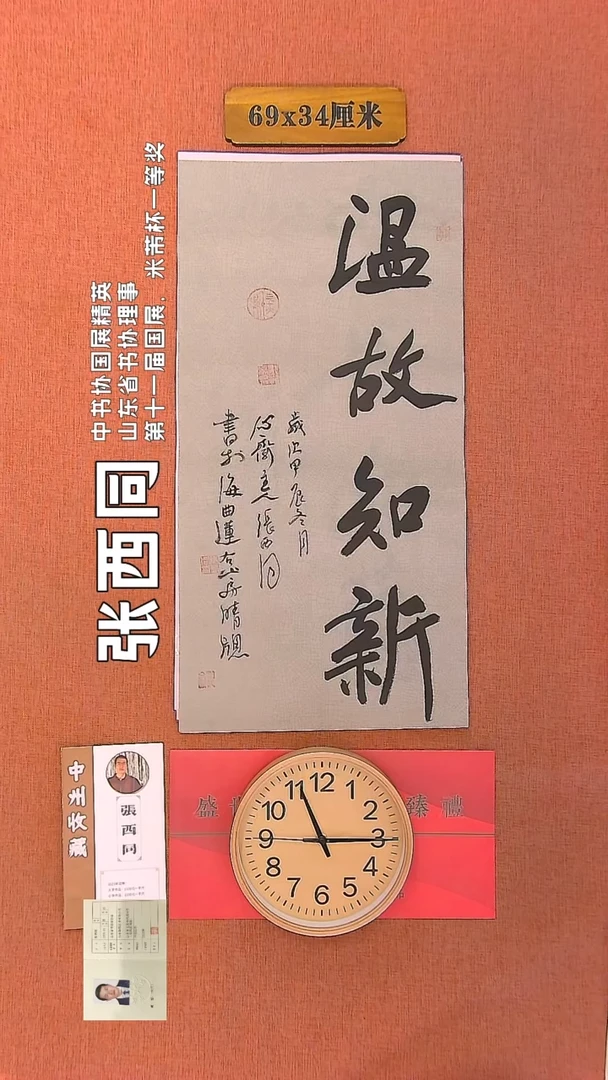 69x34厘米
温故知新
歲次甲辰冬月
心齋主人張西同
書於海曲蓮右山房晴窗
中书协国展精英
山东省书协理事
第十一届国展，米芾杯一等奖
张西同
張西同
盛世
臻禮
12
1
2
3
4
5
6
7
8
9
10
11